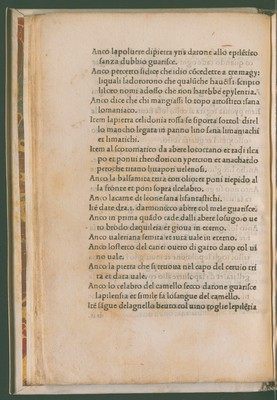 Anco la poluere di pietra yris datone allo epiletico
sanza dubbio guarisce.
Anco peretro si dice che idio cōcedette a tre magy:
iquali ladororono che qualūche hauessi scripto
li loro nomi adosso che non harebbe epylensia.
Anco dice che chi mangiassi lo topo arrostito: sana
lomaniaco.
Item la pietra celidonia rossa se si porta sottol ditel
lo mancho legata in panno lino sana limaniachi
et limatichi.
Item al scotomatico da abere lo
po et ponui theodoricon ypericon et anachardo
perche tirano liuapori uelenosi.
Anco la balsamita trita con olio et poni tiepido al
la fronte et poni sopra il celabro.
Anco la carne di leone sana li fantastichi.
Itē date dra.2. darmoniaco abere col mele guarisce.
Anco in prima quādo cade dalli abere lo sugo. o ue
ro brodo daquileia et gioua in eterno.
Anco ualeriana semita et rura uale in eterno.
Anco lo sterco del cane ouero di gatto dato col ui
no uale.
Anco la pietra che si truoua nel capo del ceruio tri
ta et data uale.
Anco lo celabro del camello secco datone guarisce
sapilensia et simile fa lo sangue del camello.
Itē sāgue delagnello beuto col uino toglie lepilēsia